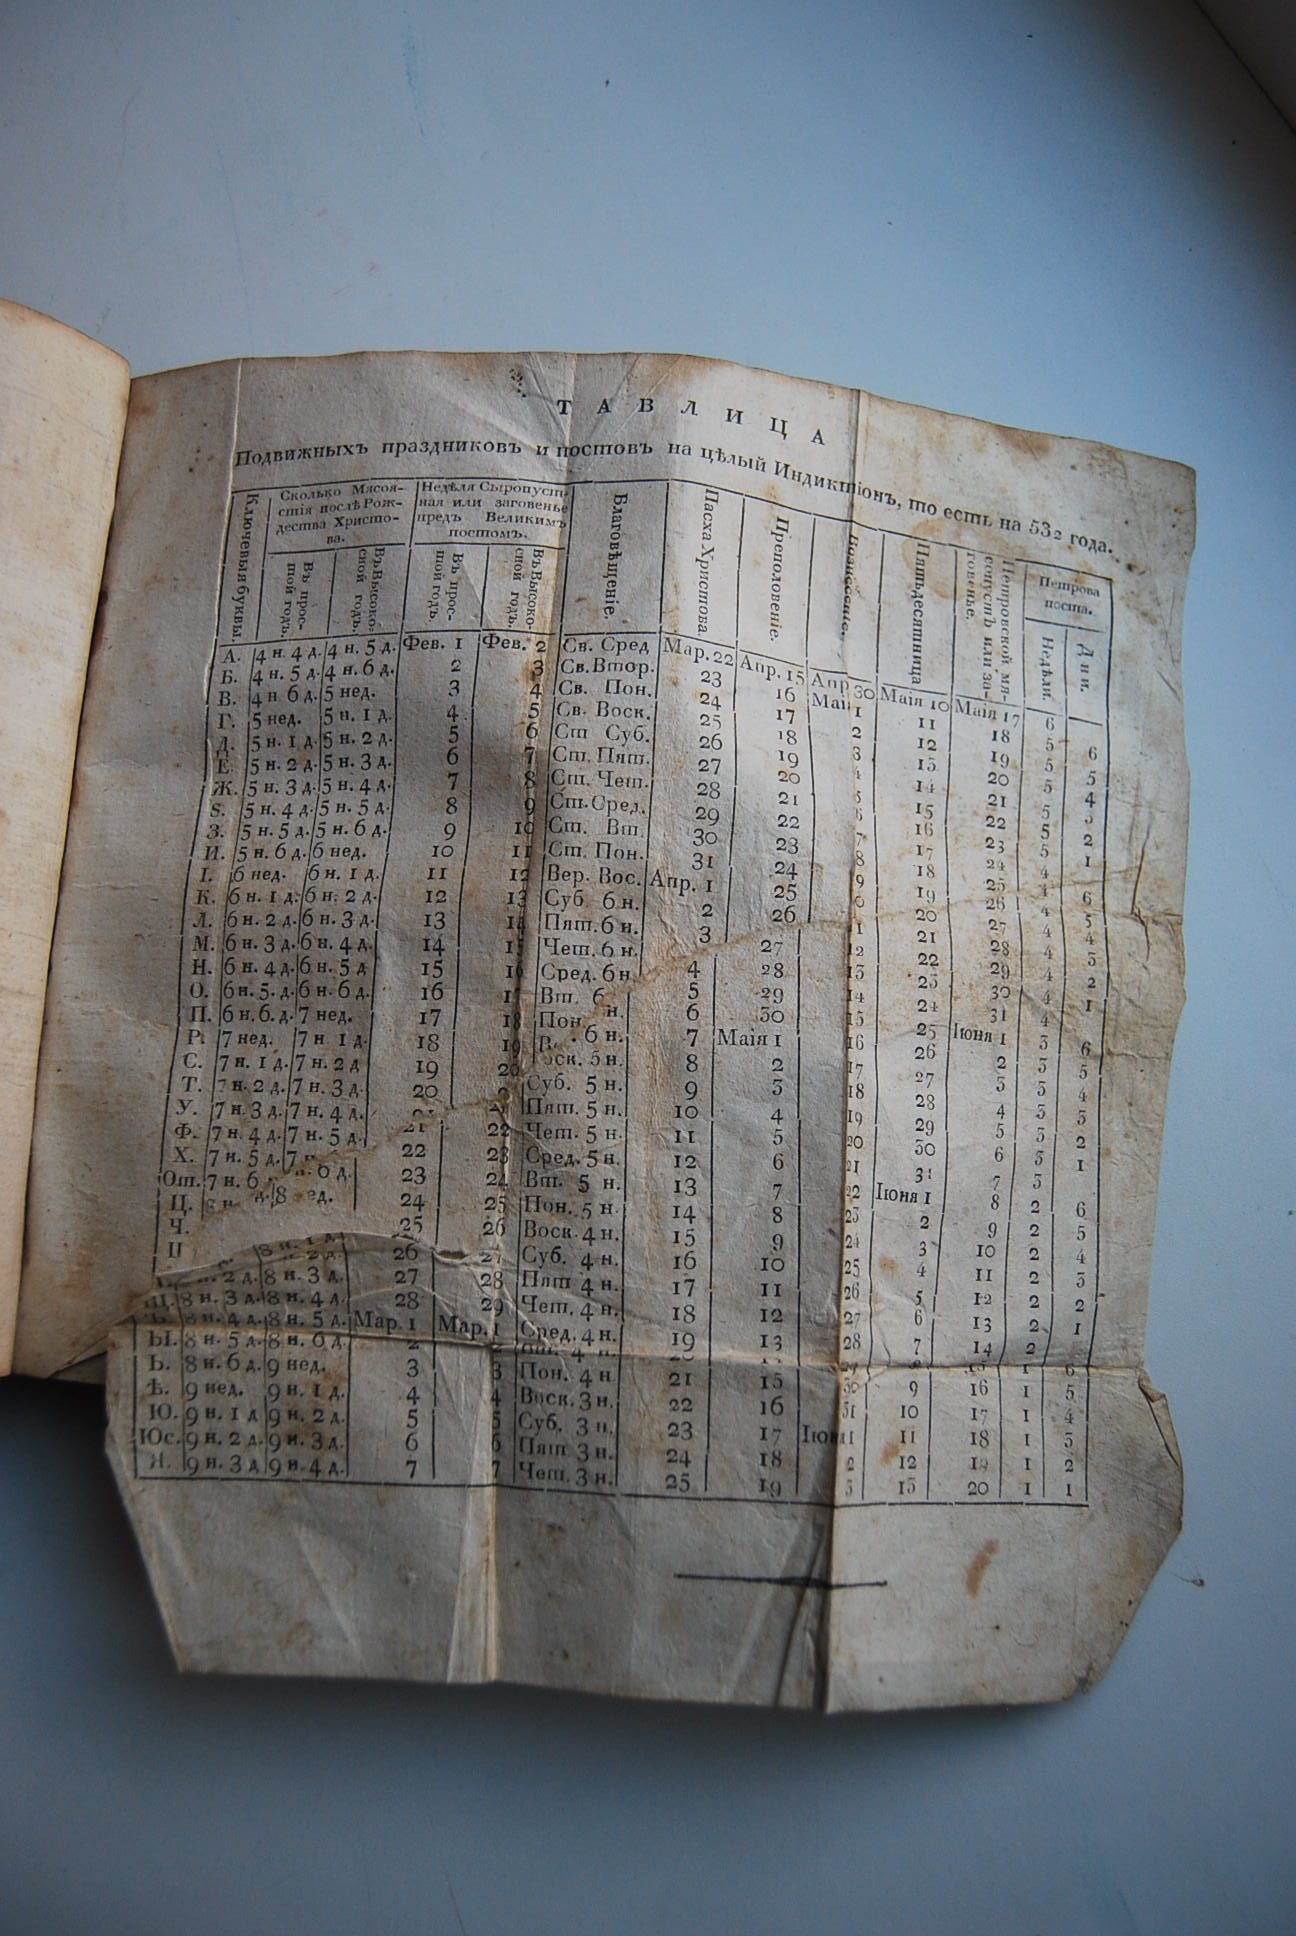 ТАБЛИЦА
Подвижныхъ праздниковъ и постовъ на цѣлый Индиктіонъ, то есть на 532 года.
Ключевыя буквы.
Сколько Мясоя-
стія послѣ Рож-
дества Христо-
ва.
Въ прос-
той годъ.
Въ Высоко-
сной годъ.
Недѣля Сыропуст-
ная или заговенье
предъ Великимъ
постомъ.
Въ прос-
той годъ.
Въ Высоко-
сной годъ.
Благовѣщеніе.
Пасха Христова
Преполовеніе.
Вознесеніе.
Пятьдесятница
Петровской мя-
сопустъ или за-
говенье.
Петрова
поста.
Недѣли.
Дни.
А. 4 н. 4 д. 4 н. 5 д. Фев. 1 Фев. 2 Св. Сред Мар. 22 Апр. 15 Апр 30 Маія 10 Маія 17 6
Б. 4 н. 5 д. 4 н. 6 д. 2 3 Св. Втор. 23 16 Маі 1 11 18 5 6
В. 4 н 6 д. 5 нед. 3 4 Св. Пон. 24 17 2 12 19 5 5
Г. 5 нед. 5 н. 1 д. 4 5 Св. Воск. 25 18 3 13 20 5 4
Д. 5 н. 1 д. 5 н. 2 д. 5 6 Ст Суб. 26 19 4 14 21 5 3
Е. 5 н. 2 д. 5 н. 3 д. 6 7 Ст. Пят. 27 20 5 15 22 5 2
Ж. 5 н. 3 д. 5 н. 4 д. 7 8 Ст. Чет. 28 21 6 16 23 5 1
Ѕ. 5 н. 4 д. 5 н. 5 д. 8 9 Ст. Сред. 29 22 7 17 24 4
З. 5 н. 5 д. 5 н. 6 д. 9 10 Ст. Вт. 30 23 8 18 25 4 6
И. 5 н. 6 д. 6 нед. 10 11 Ст. Пон. 31 24 9 19 26 4 5
І. 6 нед. 6 н. 1 д. 11 12 Вер. Вос. Апр. 1 25 0 20 27 4 4
К. 6 н. 1 д. 6 н. 2 д. 12 13 Суб. 6 н. 2 26 1 21 28 4 3
Л. 6 н. 2 д. 6 н. 3 д. 13 14 Пят. 6 н. 3 27 12 22 29 4 2
М. 6 н. 3 д. 6 н. 4 д. 14 15 Чет. 6 н. 4 28 13 23 30 4 1
Н. 6 н. 4 д. 6 н. 5 д 15 16 Сред. 6 н. 5 29 14 24 31 4
О. 6 н. 5. д. 6 н. 6 д. 16 17 Вт. 6 н. 6 30 15 25 Іюня 1 3 6
П. 6 н. 6. д. 7 нед. 17 18 Пон. 6 н. 7 Маія 1 16 26 2 3 5
Р. 7 нед. 7 н 1 д. 18 19 Воск. 5 н. 8 2 17 27 3 3 4
С. 7 н. 1 д. 7 н. 2 д 19 20 Суб. 5 н. 9 3 18 28 4 3 3
Т. 7 н. 2 д. 7 н. 3 д. 20 Пят. 5 н. 10 4 19 29 5 3 2
У. 7 н. 3 д. 7 н. 4 д. 21 22 Чет. 5 н. 11 5 20 30 6 3 1
Ф. 7 н. 4 д. 7 н. 5 д. 22 23 Сред. 5 н. 12 6 21 31 7 3
Х. 7 н. 5 д. 7 н. 6 д. 23 24 Вт. 5 н. 13 7 22 Іюня 1 8 2 6
От. 7 н. 6 д. 8 нед. 24 25 Пон. 5 н. 14 8 23 2 9 2 5
Ц. 25 26 Воск. 4 н. 15 9 24 3 10 2 4
Ч. 8 н. 2 д. 26 27 Суб. 4 н. 16 10 25 4 11 2 3
2 д. 8 н. 3 д. 27 28 Пят 4 н. 17 11 26 5 12 2 2
Щ. 8 н. 3 д. 8 н. 4 д. 28 29 Чет. 4 н. 18 12 27 6 13 2 1
Ъ. 8 н. 4 д. 8 н. 5 д. Мар. 1 Мар. 1 Сред. 4 н. 19 13 28 7 14 2
Ы. 8 н. 5 д. 8 н. 6 д. 2 2 4 н. 1 6
Ь. 8 н. 6 д. 9 нед. 3 3 Пон. 4 н. 21 15 30 9 16 1 5
Ѣ. 9 нед. 9 н. 1 д. 4 4 Воск. 3 н. 22 16 31 10 17 1 4
Ю. 9 н. 1 д 9 н. 2 д. 5 5 Суб. 3 н. 23 17 Іюня 1 11 18 1 3
Юс. 9 н. 2 д. 9 н. 3 д. 6 6 Пят 3 н. 24 18 2 12 19 1 2
Я. 9 н. 3 д 9 н. 4 д. 7 7 Чет. 3 н. 25 19 3 13 20 1 1